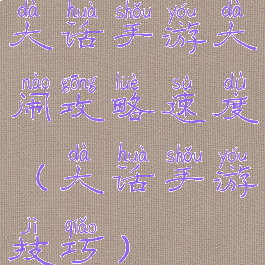 dà huà shǒu yóu dà
大话手游大
nào gōng lüè sù dù
闹攻略速度
dà huà shǒu yóu
（大话手游
jì qiǎo
技巧）